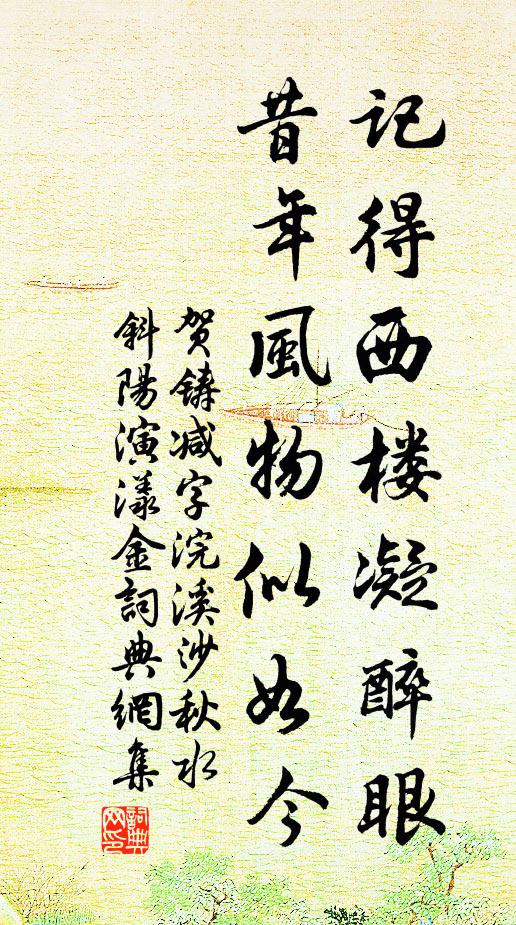 记得西楼凝醉眼
昔年風物似如今
贺鑄减字浣溪沙秋水
斜陽演漾金詞典網集
詞典网印